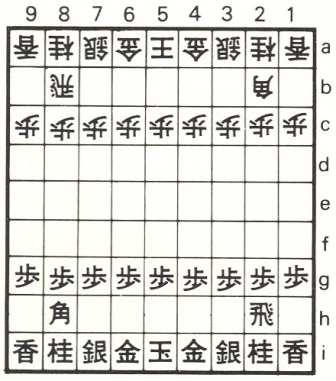 9 8 7 6 5 4 3 2 1
香 桂 銀 金 王 金 銀 桂 香 a
飛 角 b
歩 歩 歩 歩 歩 歩 歩 歩 歩 c
d
e
f
歩 歩 歩 歩 歩 歩 歩 歩 歩 g
角 飛 h
香 桂 銀 金 玉 金 銀 桂 香 i